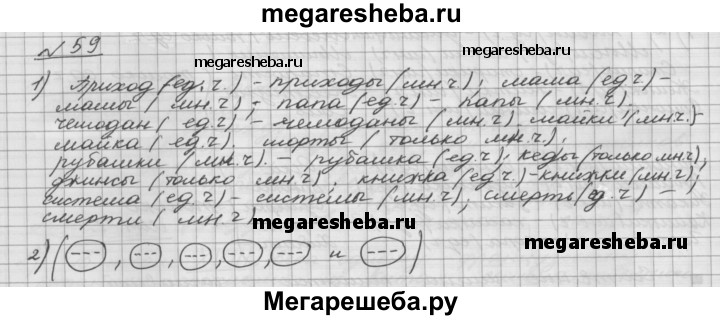 megaresheba.ru
№ 59
megaresheba.ru
megaresheba.ru
1) Приход (ед.ч.) - приходы (мн.ч), мама (ед.ч) -
мамы (мн.ч), папа (ед.ч) - папы (мн.ч),
чемодан (ед.ч) - чемоданы (мн.ч), майки (мн.ч.) -
майка (ед.ч), шорты (только мн.ч.),
рубашки (мн.ч). - рубашка (ед.ч), кеды (только мн.ч),
джинсы (только мн.ч), книжка (ед.ч.) - книжки (мн.ч),
система (ед.ч) - системы (мн.ч), смерть (ед.ч) -
смерти (мн.ч)
megaresheba.ru
2) ( --- , --- , --- , --- , --- и --- )
megaresheba.ru
Мегарешеба.ру